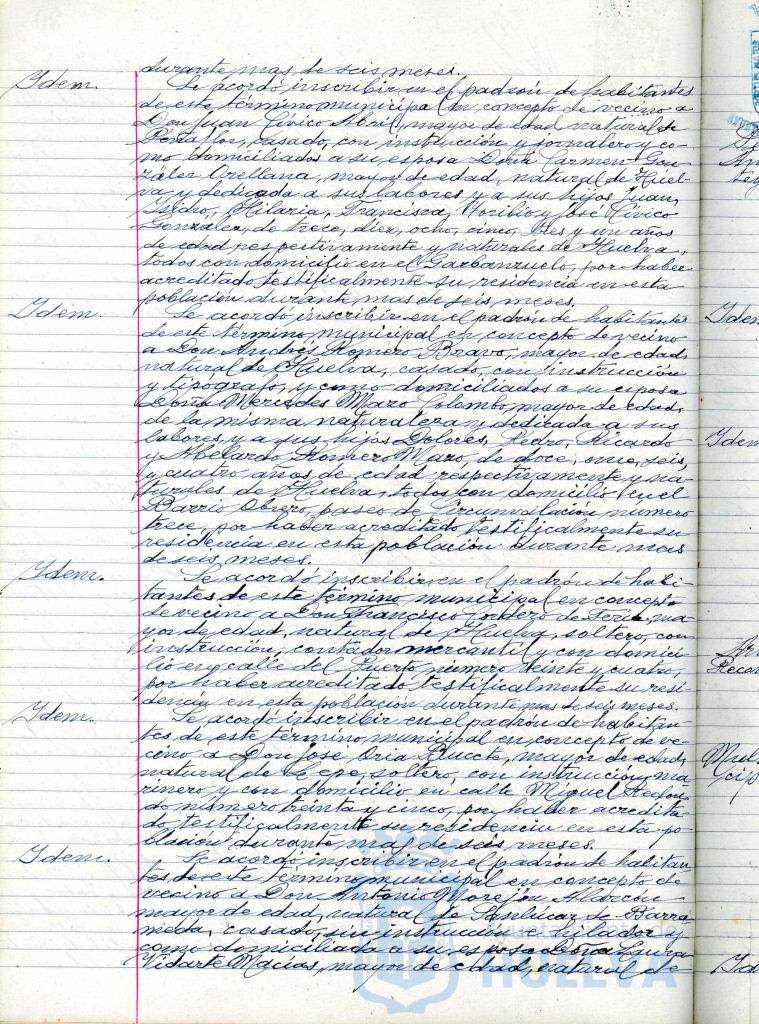 durante mas de seis meses.
Idem. Se acordó inscribir en el padrón de habitantes
de este término municipal en concepto de vecino a
Don Juan Cívico Abril, mayor de edad, natural de
Peñaflor, casado, con instrucción y jornalero y co-
mo domiciliados a su esposa Doña Carmen Gon-
zález Orellana, mayor de edad, natural de Huel-
va, y dedicada a sus labores y a sus hijos Juan,
Isidro, Hilaria, Francisca, Toribio y José Cívico
Gonzalez, de trece, diez, ocho, cinco, tres y un años
de edad respectivamente y naturales de Huelva,
todos con domicilio en el Garbanzuelo, por haber
acreditado testificalmente su residencia en esta
población durante mas de seis meses.
Idem. Se acordó inscribir en el padrón de habitantes
de este término municipal en concepto de vecino
a Don Andrés Romero Bravo, mayor de edad,
natural de Huelva, casado, con instrucción
y tipografo, y como domiciliados a su esposa
Doña Mercedes Mazo Colombo, mayor de edad,
de la misma naturaleza y dedicada a sus
labores, y a sus hijos Dolores, Pedro, Ricardo
y Abelardo Romero Mazo, de doce, once, seis,
y cuatro años de edad respectivamente y na-
turales de Huelva, todos con domicilio en el
Barrio Obrero, paseo de Circunvalacion número
trece, por haber acreditado testificalmente su
residencia en esta población durante mas
de seis meses.
Idem. Se acordó inscribir en el padrón de habi-
tantes de este término municipal en concepto
de vecino a Don Francisco Cordero de Toria, ma-
yor de edad, natural de Huelva, soltero, con
instruccion, contador mercantil y con domici-
lio en calle del Puerto número veinte y cuatro,
por haber acreditado testificalmente su resi-
dencia en esta población durante mas de seis meses.
Idem. Se acordó inscribir en el padrón de habitan-
tes de este término municipal en concepto de ve-
cino a Don José Oria, mayor de edad,
natural de Lepe, soltero, con instrucción y ma-
rinero y con domicilio en calle Miguel Redon-
do número treinta y cinco, por haber acredita-
do testificalmente su residencia en esta po-
blacion durante mas de seis meses.
Idem. Se acordó inscribir en el padrón de habitan-
tes de este término municipal en concepto de
vecino a Don Antonio Morejón Alarcón
mayor de edad, natural de Sanlucar de Barra-
meda, casado, sin instrucción y
como domiciliada a su esposa Doña Laura
Vidarte Macías, mayor de edad, natural de
HUELVA
Idem
Idem